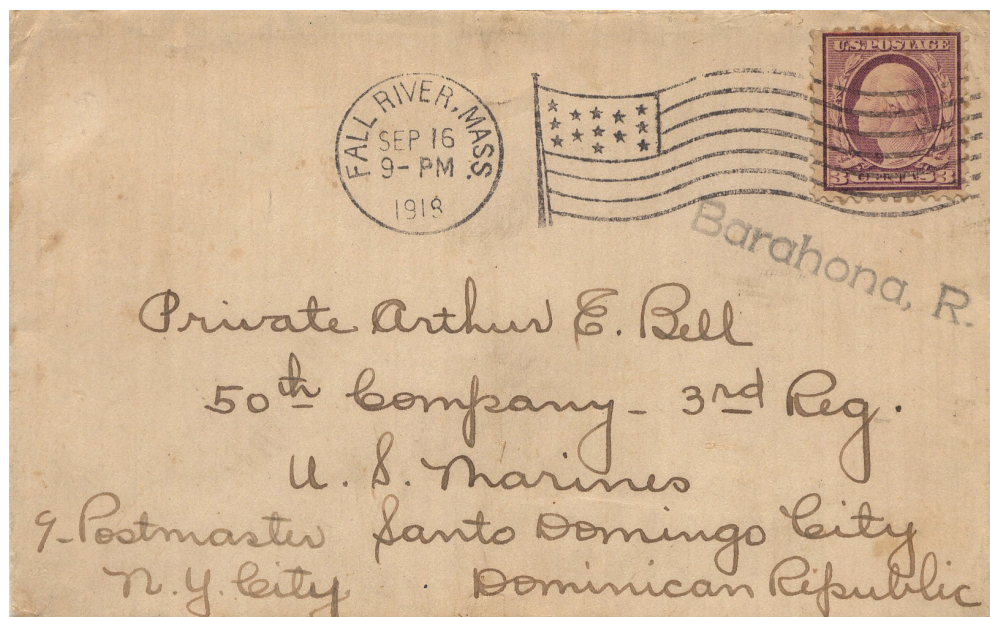 FALL RIVER, MASS.
SEP 16
9-PM
1918
U.S. POSTAGE
3 CENTS 3
Barahona, R.
Private Arthur E. Bell
50th Company - 3rd Reg.
U. S. Marines
Santo Domingo City
Dominican Republic
℅ Postmaster
N.Y. City